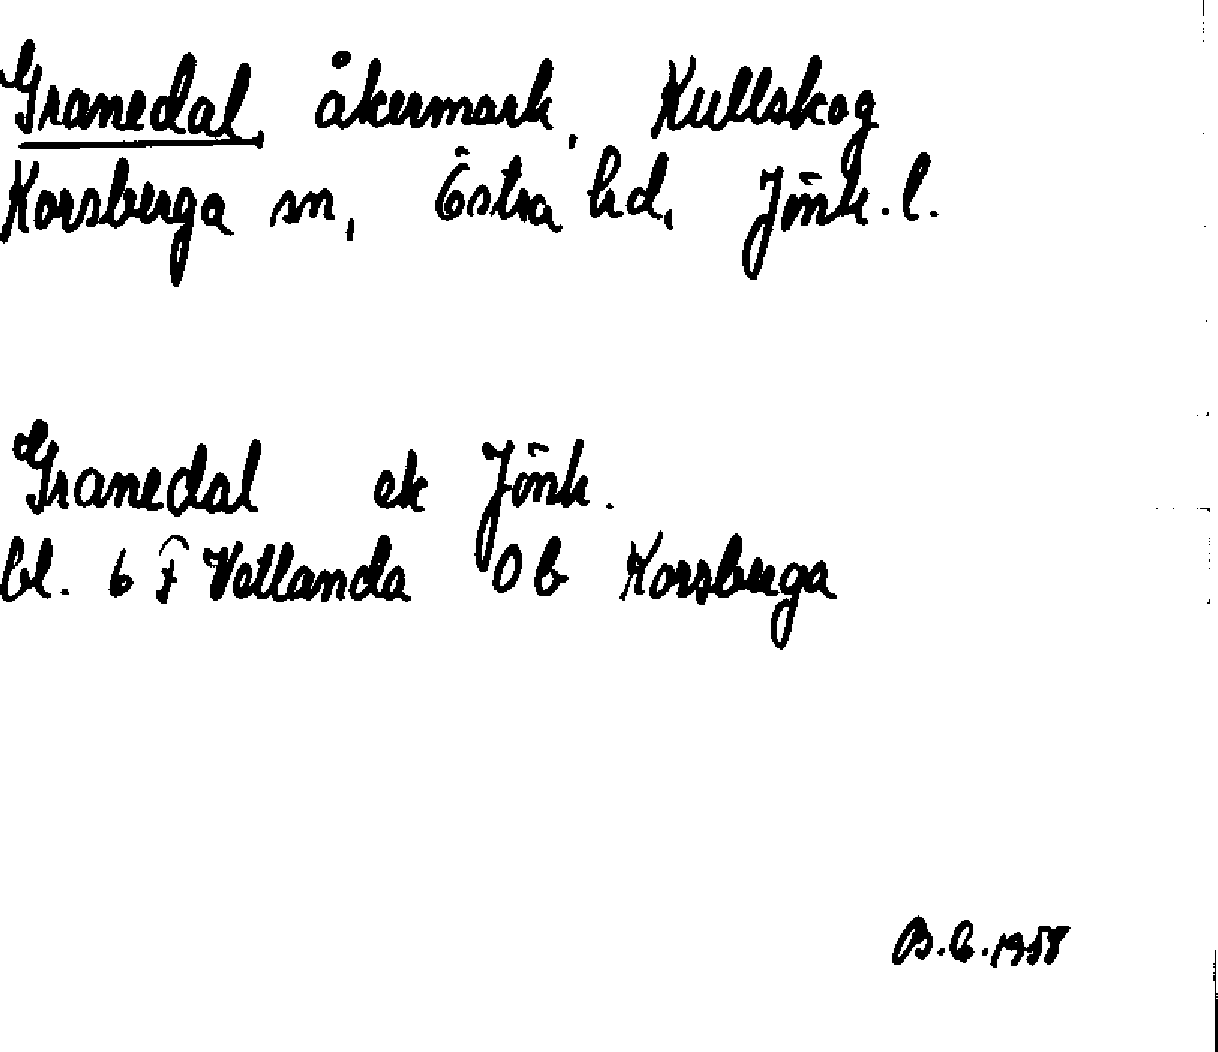 Granedal, åkermark, Kullskog
Korsberga sn, Östra hd, Jönk. l.
Granedal ek Jönk.
bl. 6 f Vetlanda Ob Korsberga
B.G. 1958